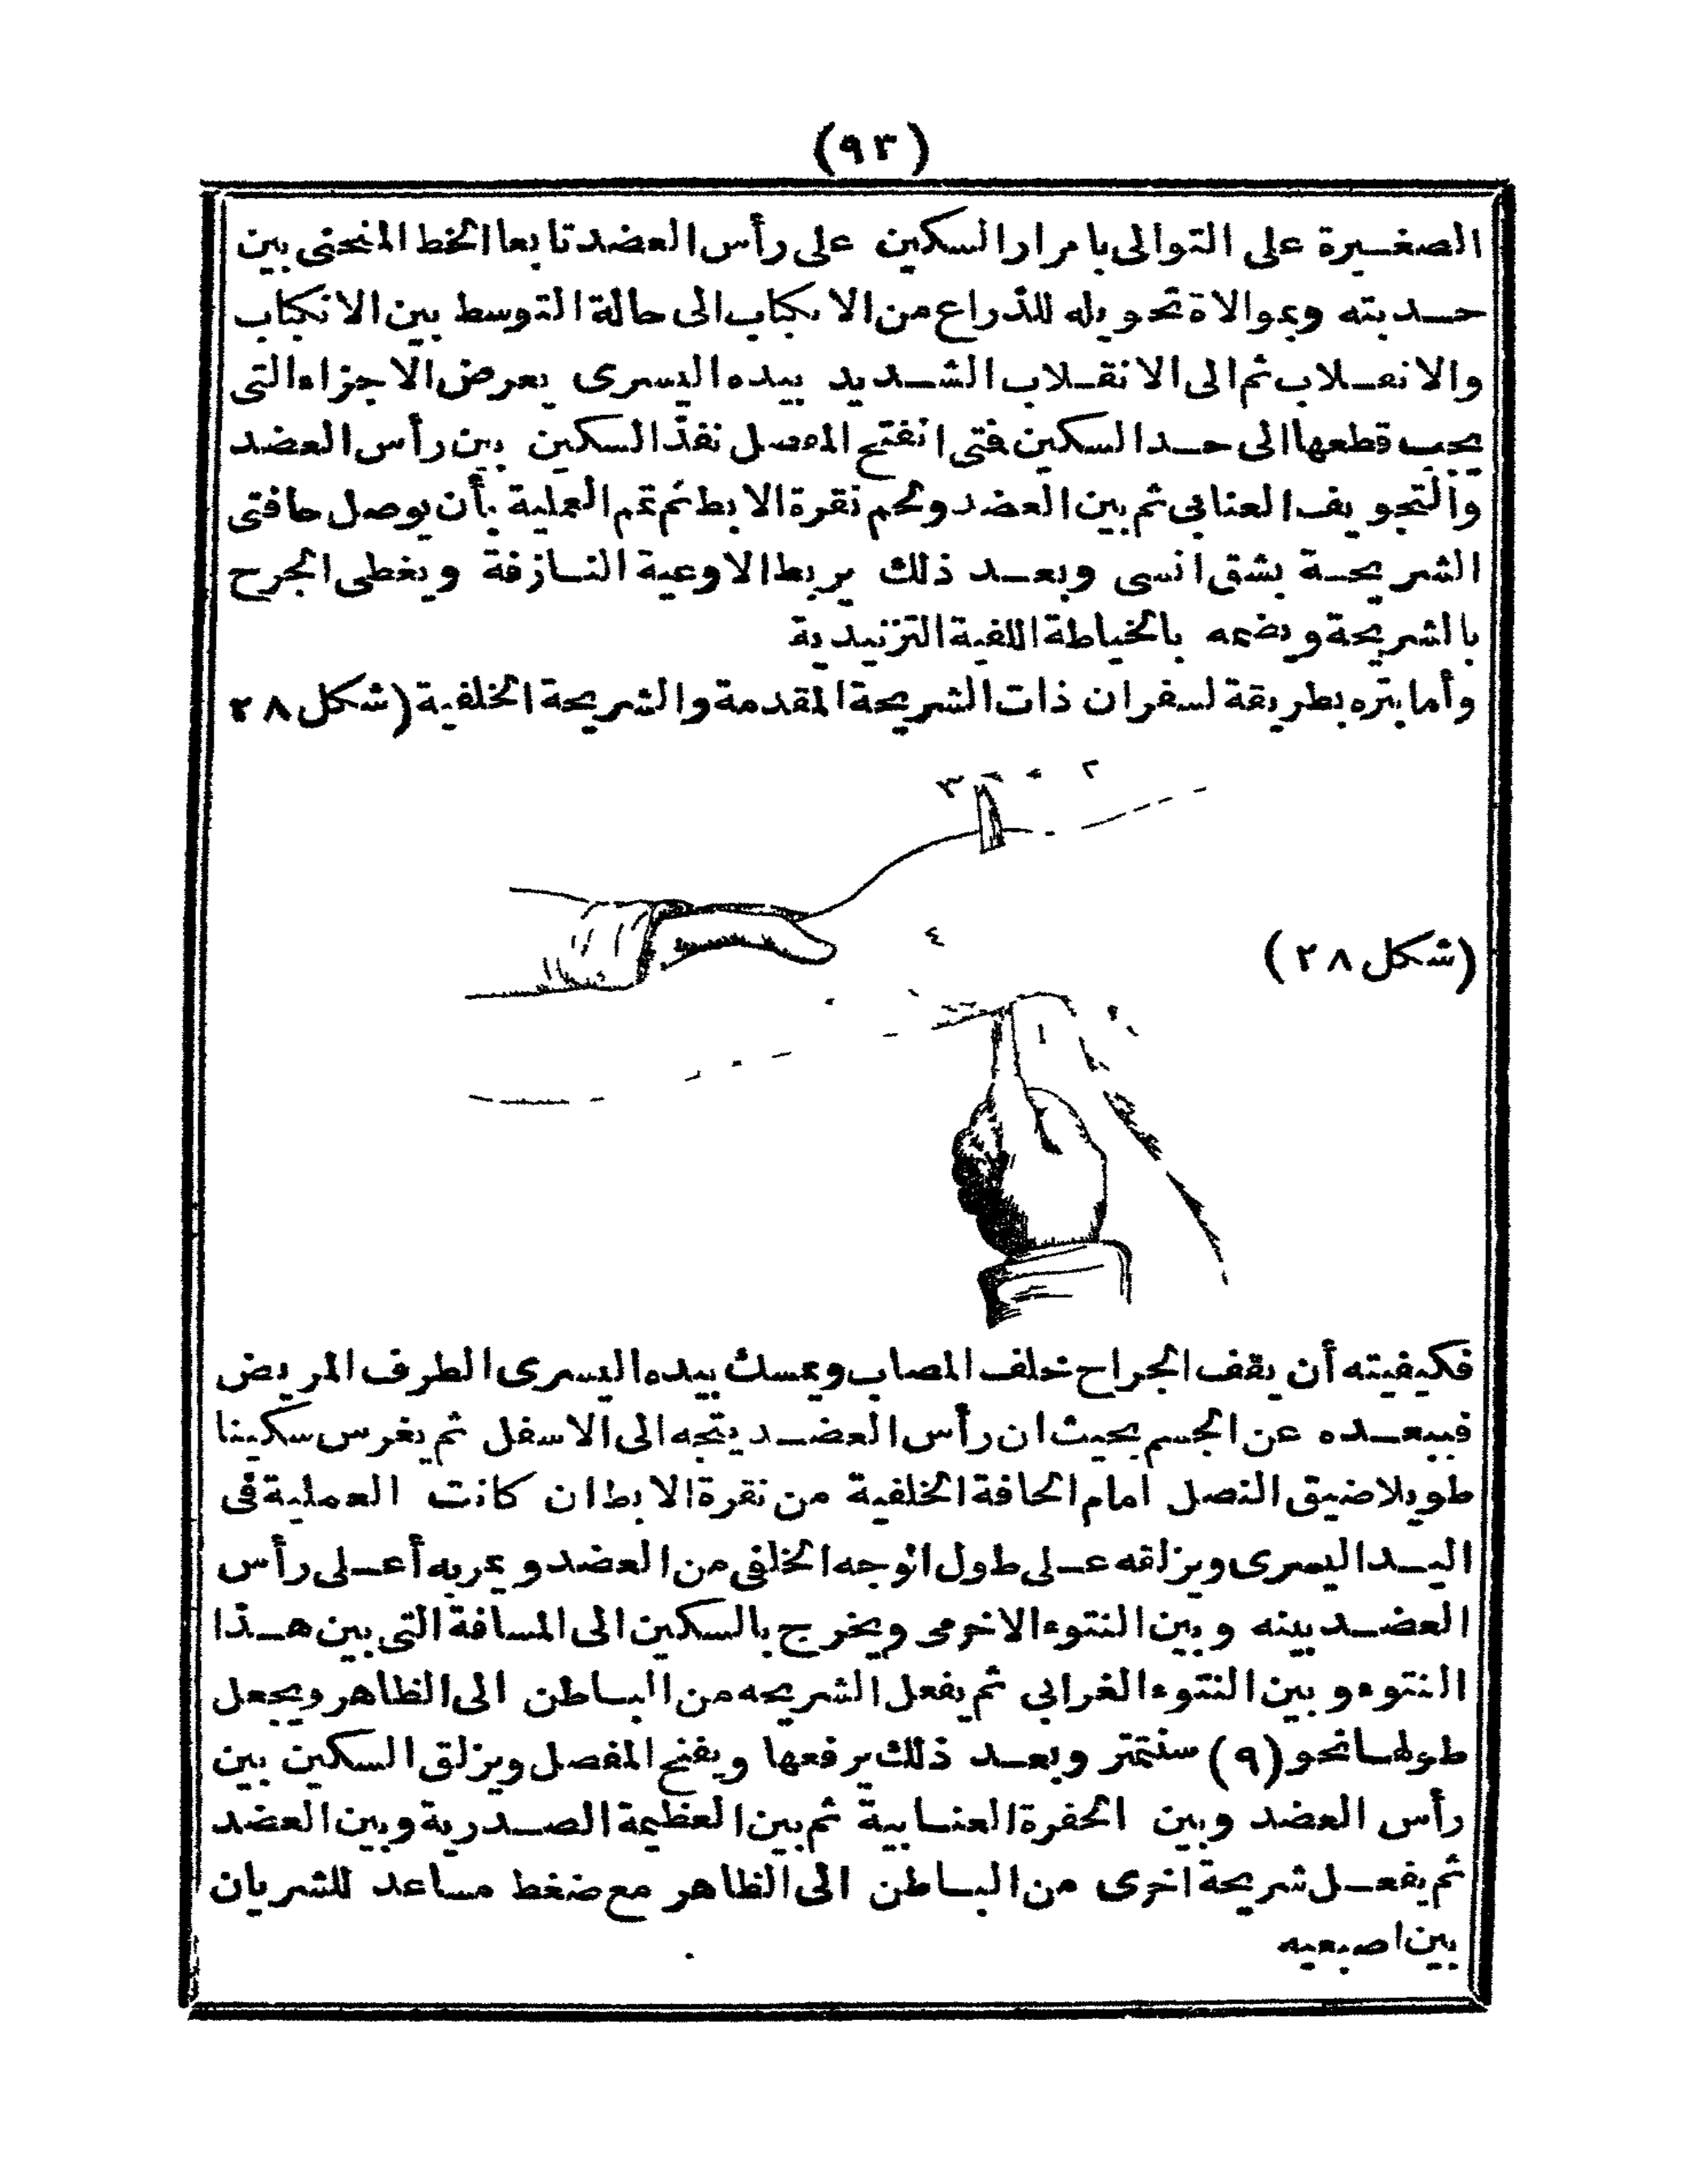 (٩٣)
الصغيرة على التوالى بامرار السكين على رأس العضد تابعا الخط المنحنى بين
حدبته وبموالاة تحويله للذراع من الانكباب الى حالة التوسط بين الانكباب
والانقلاب ثم الى الانقلاب الشديد بيده اليسرى يعرض الاجزاء التى
يجب قطعها الى حد السكين فتى انفتح المفصل نفذ السكين بين رأس العضد
والتجويف العنابى ثم بين العضد ولحم نقرة الابط ثم تمم العملية بأن يوصل حافتى
الشريحة بشق انسى وبعد ذلك يربط الاوعية النازفة ويغطى الجرح
بالشريحة ويضمه بالخياطة اللفية التزنيدية
وأما بتره بطريقة لسفران ذات الشريحة المقدمة والشريحة الخلفية (شكل ٢٨
٢
٣
٤
(شكل ٢٨)
١
فكيفيته أن يقف الجراح خلف المصاب ويمسك بيده اليسرى الطرف المريض
فيبعده عن الجسم بحيث ان رأس العضد يتجه الى الاسفل ثم يغرس سكينا
طويلا ضيق النصل امام الحافة الخلفية من نقرة الابط ان كانت العملية فى
اليد اليسرى ويزلقه على طول الوجه الخلفى من العضد ويمر به أعلى رأس
العضد بينه وبين النتوء الاخرمى ويخرج بالسكين الى المسافة التى بين هذا
النتوء وبين النتوء الغرابى ثم يفعل الشريحه من الباطن الى الظاهر ويجعل
طولها نحو (٩) سنتمتر وبعد ذلك يرفعها ويفتح المفصل ويزلق السكين بين
رأس العضد وبين الحفرة العنابية ثم بين العظيمة الصدرية وبين العضد
ثم يفعل شريحة اخرى من الباطن الى الظاهر مع ضغط مساعد للشريان
بين اصبعيه